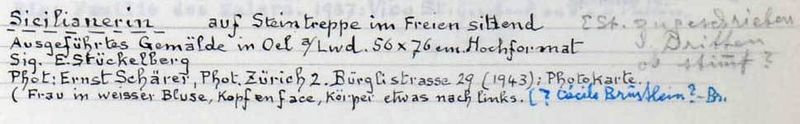 Sicilianerin auf Steintreppe im Freien sitzend
E St. zugeschrieben
Ausgeführtes Gemälde in Oel a/Lwd. 56 x 76 cm. Hochformat
v. Dritten
Sig. E. Stückelberg
ob stimmt?
Phot: Ernst Schärer, Phot. Zürich 2. Bürglistrasse 29 (1943); Photokarte.
(Frau in weisser Bluse, Kopf enface, Körper etwas nach links. (? Cécile Brüstlein? - Br.